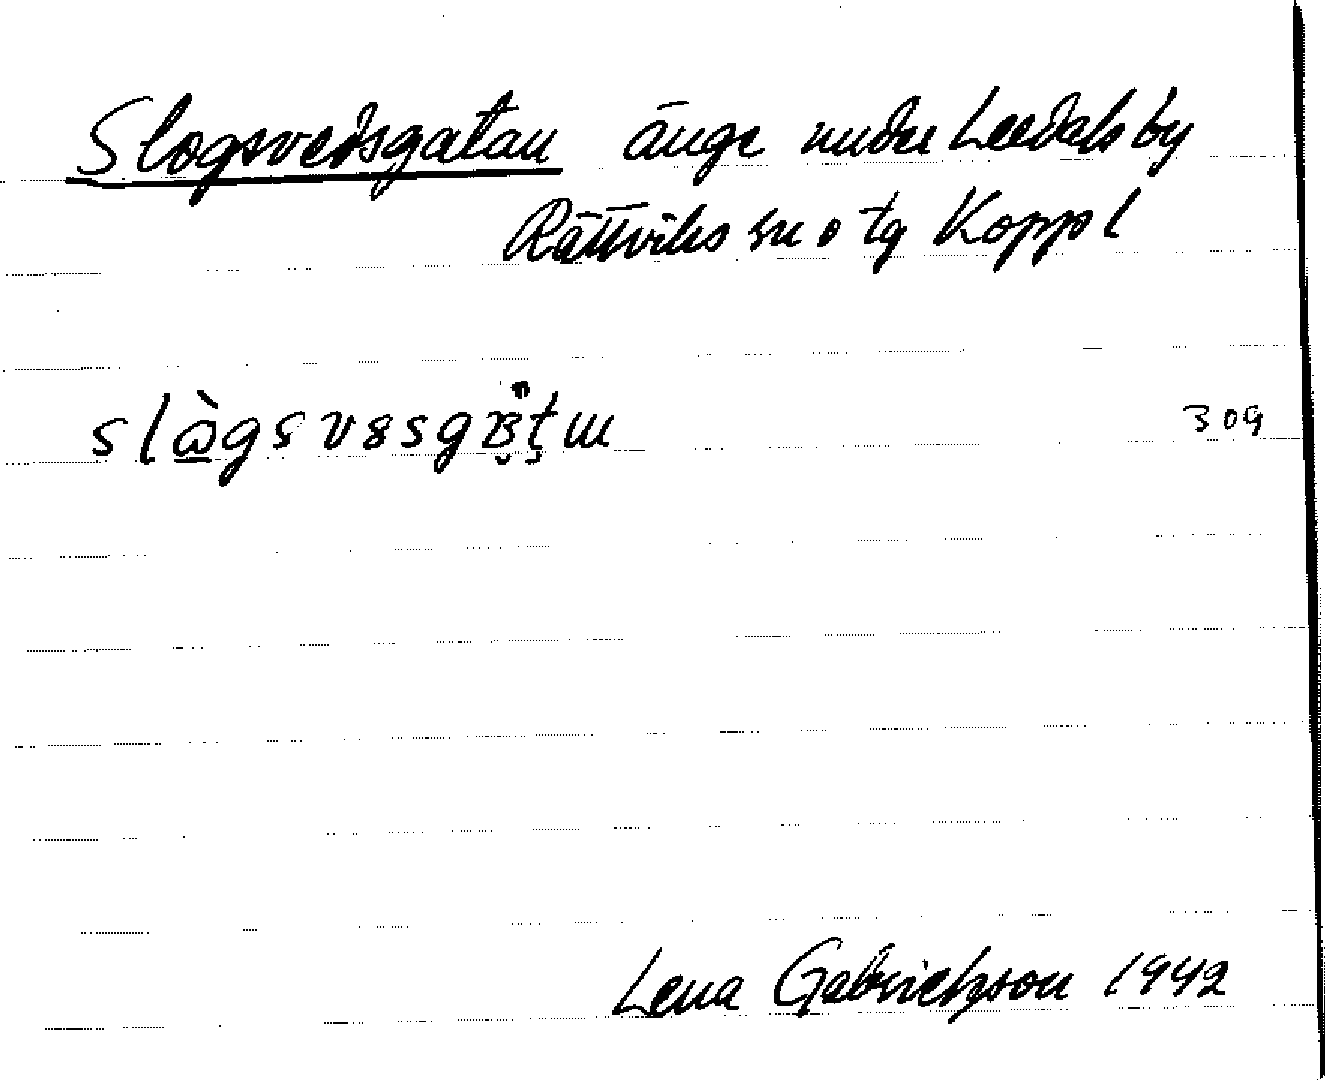 Slogsvedsgatan änge under Leedals by
Rättviks sn o tg Koppl
309
Lena Gabrielsson 1942